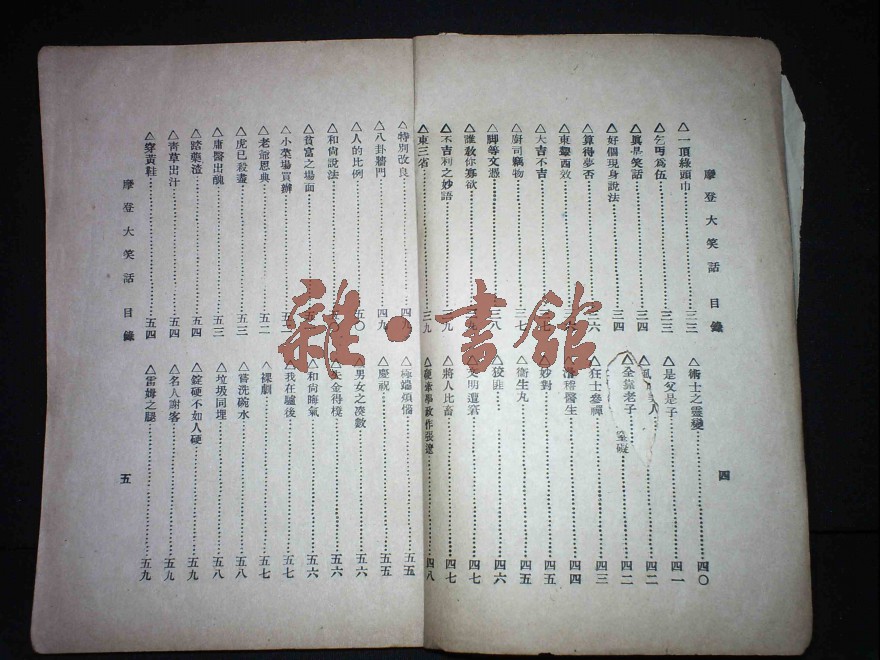 摩登大笑話 目錄
四
△一頂綠頭巾 三三
△乞丐爲伍 三三
△眞是笑話 三四
△好個現身說法 三四
△算得夢否
△東顰西效
△大吉不吉
△廚司竊物 三七
△脚等文憑 三八
△誰敢你寡欲
△不吉利之妙語
△東三省 三九
△術士之靈變 四〇
△是父是子 四一
四二
△全靠老子 四二
△狂士參禪 四三
△滑稽醫生 四四
△妙對 四五
△衞生丸 四五
△狡誰 四六
△文明遺策 四七
△將人比畜 四七
四八
△特別改良 四九
△八卦牆門 四九
△人的比例 五〇
△和尙說法
△貧富之場面
△小菜場買辦
△老爺恩典 五二
△虎已殺盡 五三
△庸醫出醜 五三
△踏藥渣 五四
△靑草出汁 五四
△穿黃鞋 五四
△極端煩惱 五五
△慶祝 五五
△男女之湊數 五六
△失金得棧 五六
△和尙晦氣 五六
△我在驢後 五七
△裸劇 五七
△嘗洗碗水 五八
△垃圾同埋 五八
△錠硬不如人硬 五九
△名人謝客 五九
△雷姆之腿 五九
摩登大笑話 目錄
五
雜·書館